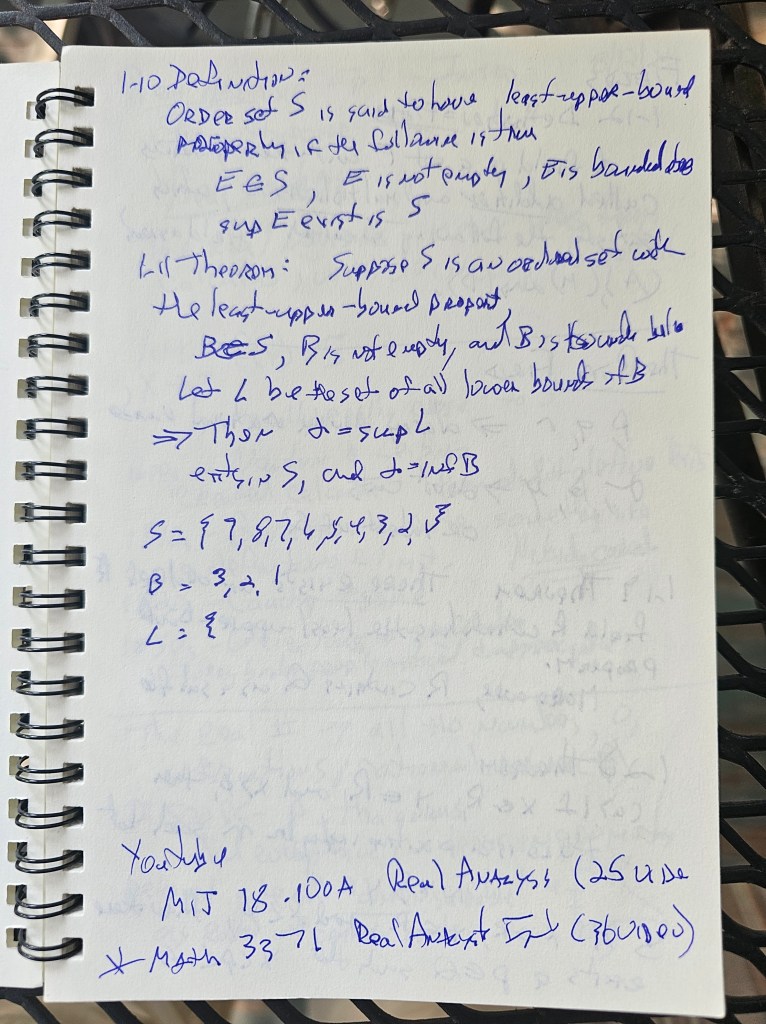 1-10 Definition:
ORDER set S is said to have least-upper-bound
property if the following is true
E ∈ S, E is not empty, E is bounded
sup E exist is S
1.11 Theorem: Suppose S is an ordered set with
the least-upper-bound property
B ∈ S, B is not empty, and B is bounded below
Let L be the set of all lower bounds of B
=> Then α = sup L
exits in S, and α = inf B
S = { 7, 8, 7, 6, 5, 4, 3, 2, }
B = 3, 2, 1
L = {
Youtube
MIT 18.100A Real Analysis (25 vide
* Math 3371 Real Analysis (36 video)